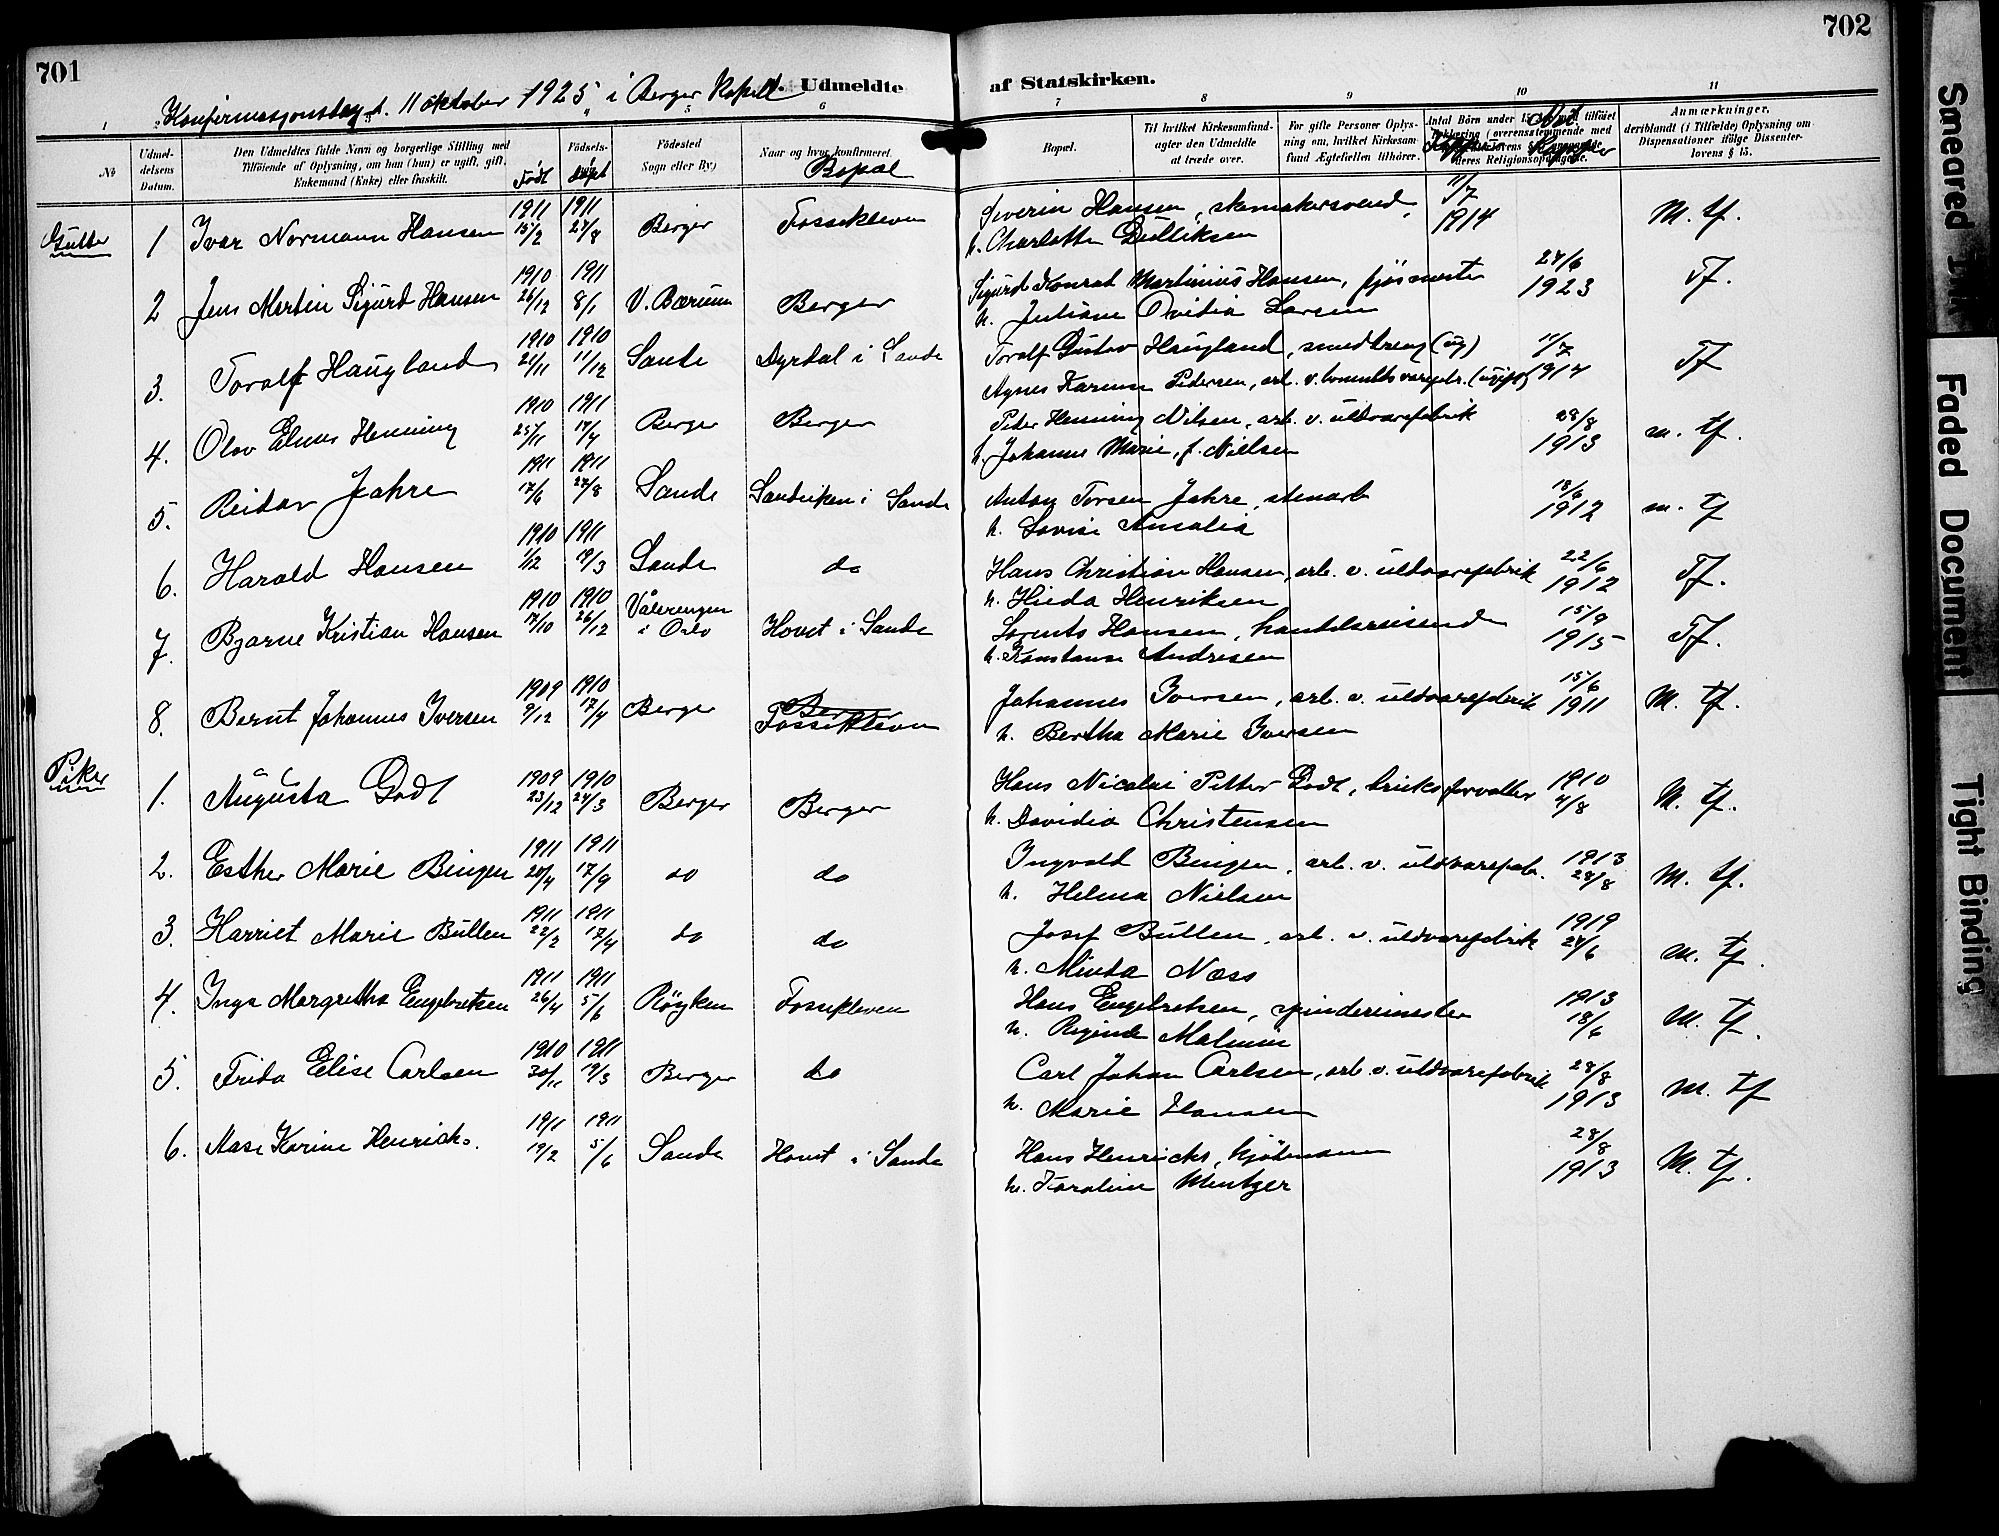 701
702
Konfirmasjonsdag d. 11 oktober 1925 i Berger Kapell
Udmeldte af Statskirken.
1 3 5 6 7 8 9 10 11
No
Udmel-
delsens
Datum.
Den Udmeldtes fulde Navn og borgerlige Stilling med
Tilföiende af Oplysning, om han (hun) er ugift, gift,
Enkemand (Enke) eller fraskilt.
Født
Fødsels-
døpt
Födested
Sogn eller By)
Naar og hvor konfirmeret.
Bopæl
Bopæl.
Til hvilket Kirkesamfund-
agter den Udmeldte
at træde over.
For gifte Personer Oplys-
ning om, hvilket Kirkesam
fund Ægtefællen tilhører.
Antal Börn under 15 tilföiet
Erklæring (overensstemmende med
deres Religionsopdragelse.
Anmærkninger,
deriblandt (i Tilfælde) Oplysning om
Dispensationer ifölge Dissenter-
lovens § 15.
Gutter
1 Ivar Normann Hansen 1911 15/2 1911 27/8 Berger Fossekleven Severin Hansen, skomakersvend, 11/7 1914 M. tf.
h. Charlotte Dedliksen
2 Jens Martin Sigurd Hansen 1910 26/12 1911 8/1 V. Bærum Berger Sigurd Konrad Martinius Hansen, fjøsmester 24/6 1923 Tf.
h. Juliane Ovidia Larsen
3. Toralf Haugland 1910 21/11 1910 11/12 Sande Dyrdal i Sande Toralf Gustav Haugland, smeddreng (ug) 11/7 1914 Tf
Agnes Karense Pedersen, arb. v. (ugift)
4. Olav Elmar Henning 1910 25/11 1911 17/4 Berger Berger Peder Henning Nilsen, arb. v. uldvarefabrik 28/8 1913 m. tf.
h. Johanne Marie, f. Nielsen
5. Reidar Jahre 1911 17/6 1911 27/8 Sande Sandviken i Sande Anton Torsen Jahre, stenarb 18/6 1912 m. tf
h. Lovise Amalia
6. Harald Hansen 1910 1/12 1911 19/3 Sande do Hans Christian Hansen, arb. v. uldvarefabrik 22/6 1912 Tf.
h. Hilda Henriksen
7. Bjarne Kristian Hansen 1910 17/10 1910 26/12 Vålerengen i Oslo Hovet i Sande Lorents Hansen, handelsreisende 15/9 1915 Tf.
h. Konstanse Andresen
8. Bernt Johannes Iversen 1909 9/12 1910 17/4 Berger Berger Fossekleven Johannes Iversen, arb. v. uldvarefabrik 15/6 1911 M. tf.
h. Bertha Marie Iversen
Piker
1. Augusta Godt 1909 23/12 1910 24/3 Berger Berger Hans Nicolai Petter Godt, bruksforvalter 1910 4/8 M. tf.
h. Davidia Christensen
2. Esther Marie Bingen 1911 20/4 1911 17/9 do do Ingvald Bingen, arb. v. uldvarefab. 1913 28/8 M. tf.
h. Helma Nielsen
3. Harriet Marie Bullen 1911 22/2 1911 17/4 do do Josef Bullen, arb. v. uldvarefabrik 1919 24/6 M. tf.
h. Minda Næss
4. Inga Margretha Engebretsen 1911 26/4 1911 5/6 Röyken Fossekleven Hans Engebretsen, spinderimester 1913 18/6 M. tf.
h. Reginde Malmin
5. Frida Elise Carlsen 1910 30/11 1911 19/3 Berger do Carl Johan Carlsen, arb. v. uldvarefabrik 28/8 1913 M. tf
h. Marie Hansen
6. Aase Karine Henrichs. 1911 19/2 1911 5/6 Sande Hovet i Sande Hans Henrichs, kjøbmann 28/8 1913 M. tf.
h. Karoline Mentzer
Smeared Ink
Faded Document
Tight Binding